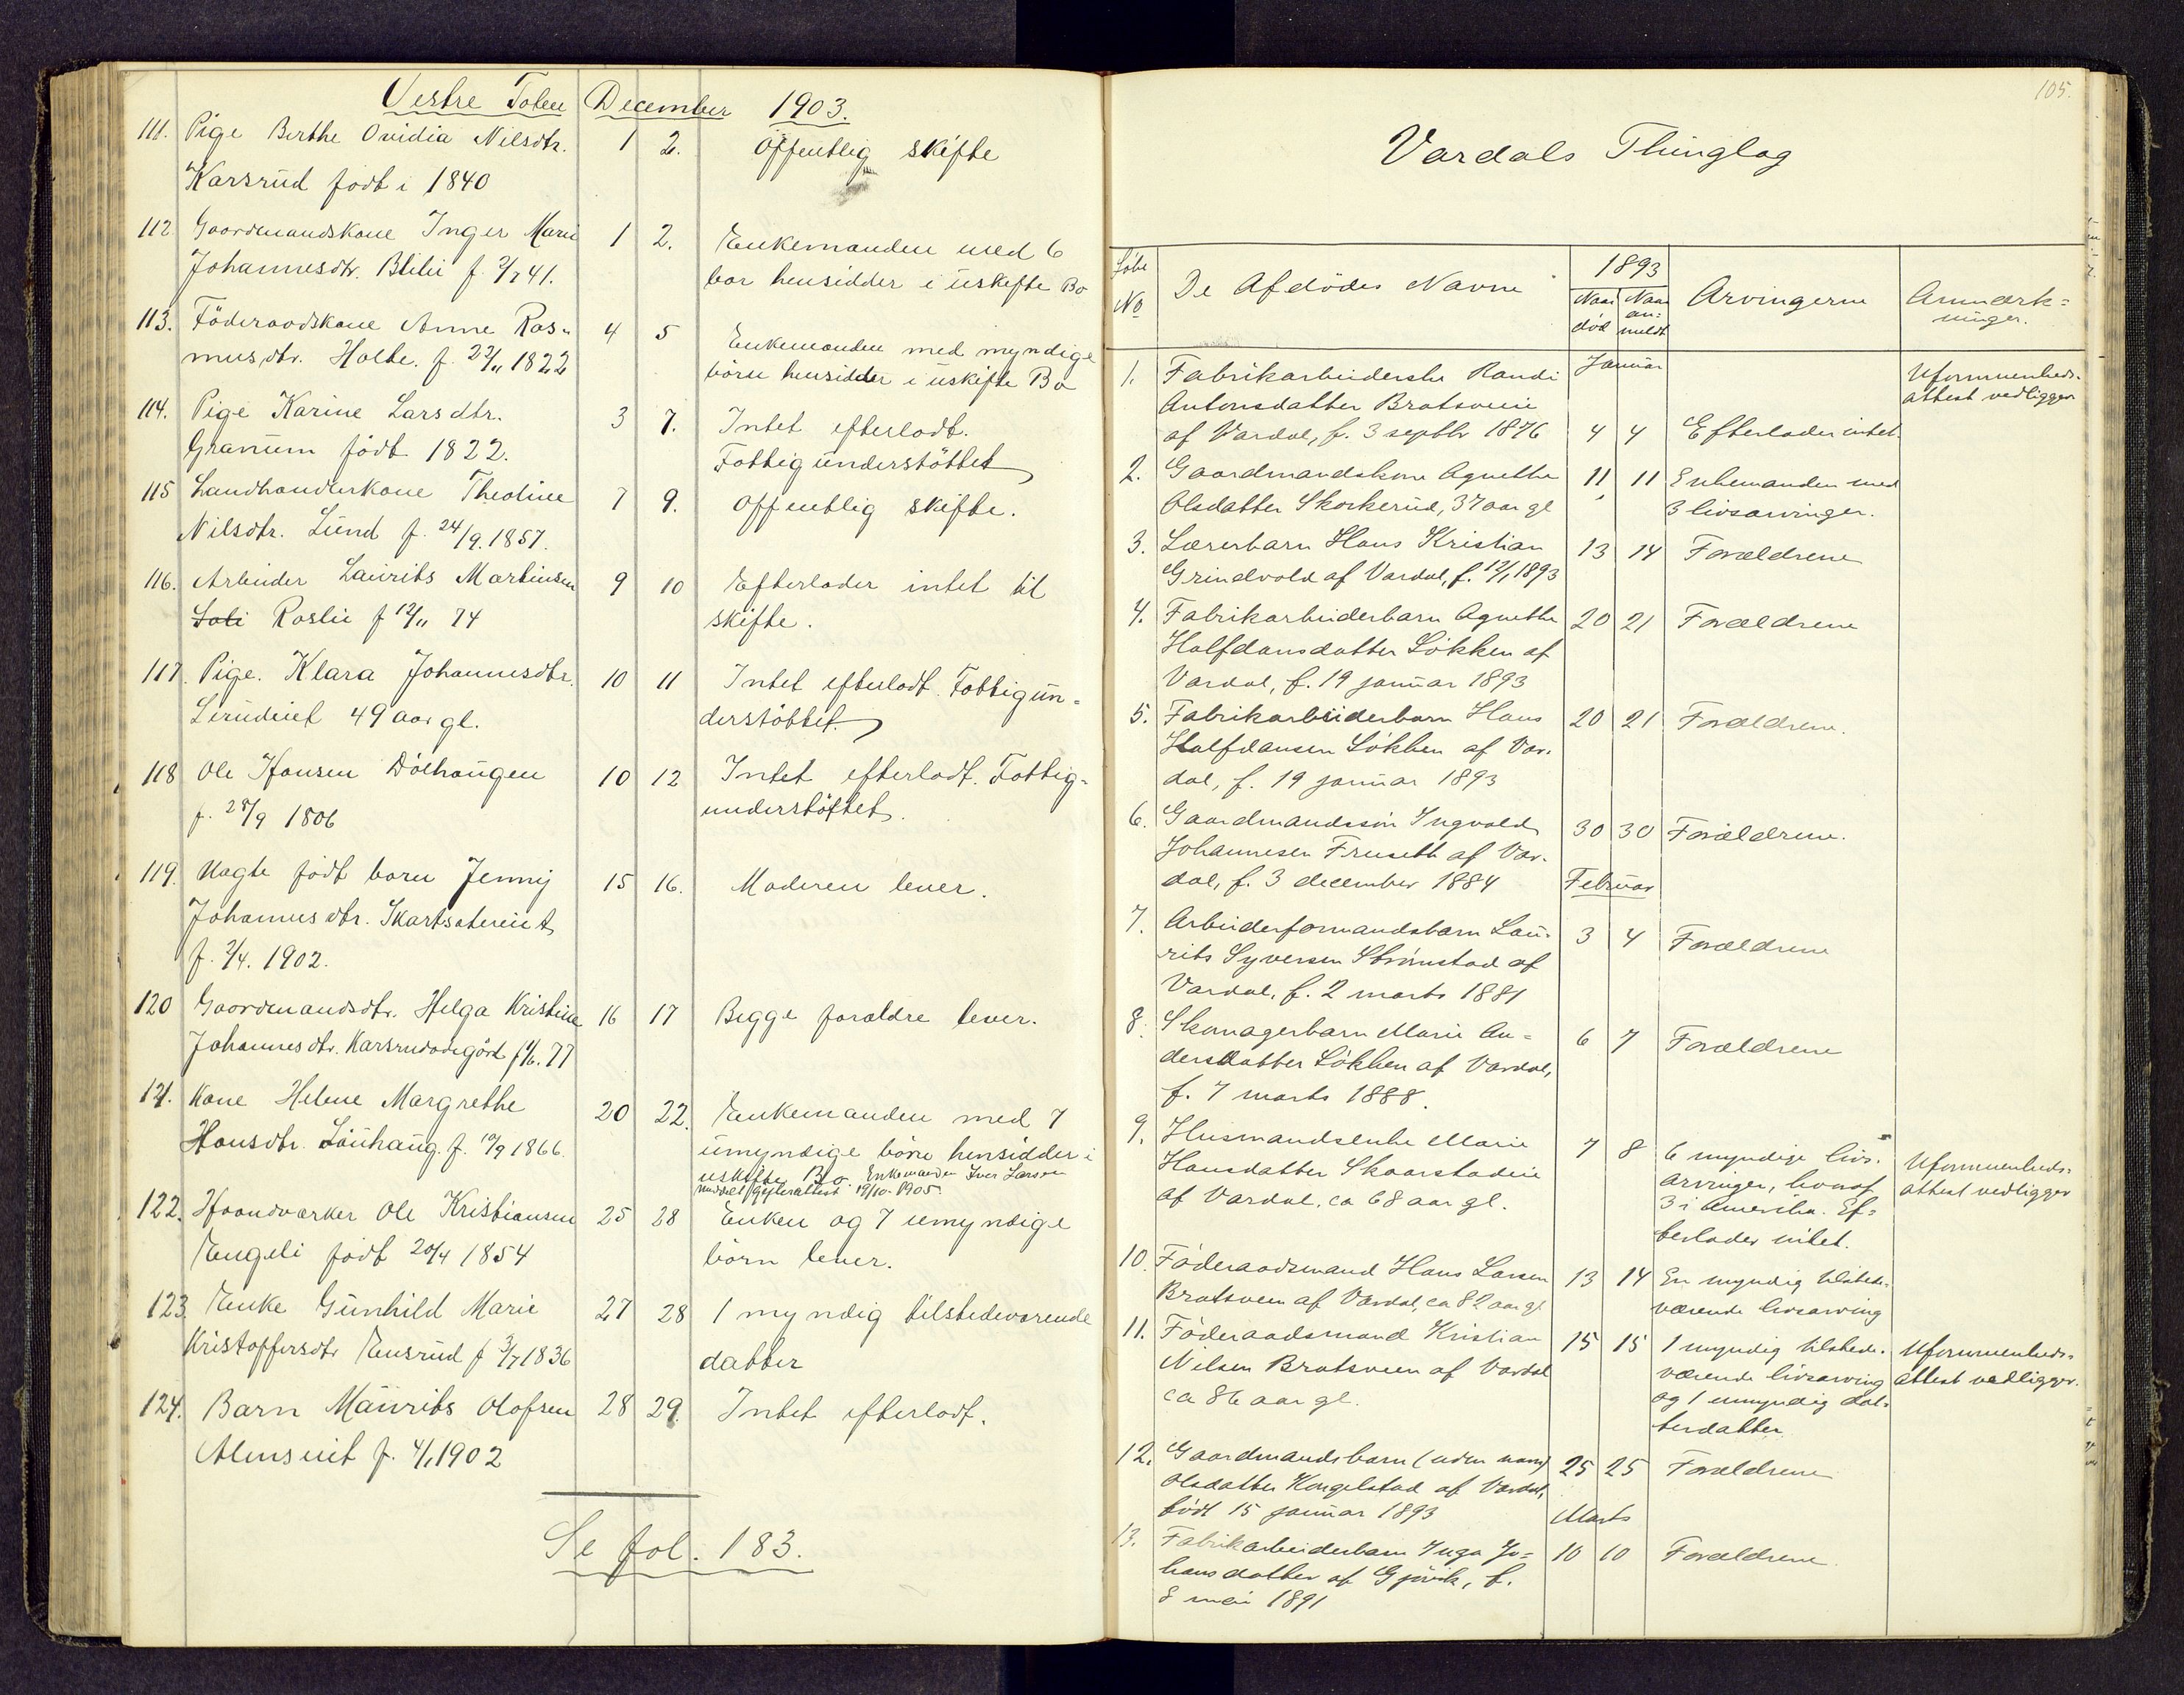 Vestre Toten December 1903.
111. Pige Berthe Ovidia Nilsdtr. 1 2. Offentlig skifte
Karsrud født i 1840
112 Gaardmandskone Inger Marie 1 2. Enkemanden med 6
Johannesdtr. Blilie f. 2/7 41. bar hensidder i uskifte Bo
113. Föderaadskone Anne Ras- 4 5 Enkemanden med myndige
musdtr. Holte. f. 22/11 1822 börn hensidder i uskifte Bo
114. Pige Karine Larsdtr. 3 7. Intet efterladt.
Granum födt 1822. Fattigunderstöttet
115 Landhandlerkone Theoline 7 9. Offentlig skifte.
Nilsdtr. Lund f. 24/9. 1857.
116. Arbeider Laurits Martinsen 9 10 Efterlader intet til
Roslie f 12/11 74 skifte.
117. Pige. Klara Johannesdtr. 10 11 Intet efterladt. Fattigun-
Lerudeiet 49 aar gl. derstöttet.
118 Ole Hansen Dölhaugen 10 12 Intet efterladt. Fattig-
f. 28/9 1806 understöttet.
119. Uægte födt barn Jenny 15 16. Moderen lever.
Johannesdtr. Skartsatereiet
f. 2/4. 1902.
120 Gaardmandsdtr. Helga Kristine 16 17 Begge forældre lever.
Johannesdtr. f 1/6. 77
121. Kone Helene Margrethe 20 22. Enkemanden med 7
Hansdtr. Lönhaug. f. 10/9 1866. umyndige börn hensidder i
uskifte Bo. Enkemanden Iver Larsen
meddelt Gifterattest 19/10-1905.
122. Haandværker Ole Kristiansen 25 28 Enken og 7 umyndige
Engeli födt 20/4 1854 börn lever.
123. Enke Gunhild Marie 27 28 1 myndig tilstedeværende
Kristoffersdtr Ensrud f 3/7 1836 datter
124. Barn Maurits Olafsen 28 29. Intet efterladt.
Almseiet f. 4/1 1902
Se fol. 183.
105.
Vardals Thinglag
Löbe No De Afdödes Navne 1893 Naar död Naar an-meldt Arvingerne Anmærk-
ninger.
Januar
1. Fabrikarbeiderske Randi Uformuenheds-
Antonsdatter Bratsveie attest vedligger
af Vardal, f. 3 septbr 1876 4 4 Efterlader intet
2. Gaardmandskone Agnethe 11 11 Enkemanden med
Olsdatter Skorkerud, 37 aar gl 3 livsarvinger.
3. Lærerbarn Hans Kristian 13 14 Forældrene
Grindvold af Vardal, f. 12/1 1893
4. Fabrikarbeiderbarn Agnethe 20 21 Forældrene
Halfdansdatter Lökken af
Vardal, f. 19 januar 1893
5. Fabrikarbeiderbarn Hans 20 21 Forældrene.
Halfdansen Lökken af Var-
dal, f. 19 januar 1893
6. Gaardmandssön Ingvald 30 30 Forældrene.
Johannesen Fruseth af Var-
dal, f. 3 december 1884
Februar
7. Arbeiderformandsbarn Lau- 3 4 Forældrene
rits Syversen Strömstad af
Vardal, f. 2 marts 1881
8. Skomagerbarn Marie An- 6 7 Forældrene
dersdatter Lökken af Vardal,
f. 7 marts 1888.
9. Husmandsenke Marie 7 8 6 myndige livs- Uformuenheds-
Hansdatter Skaarstadeie arvinger, hvoraf attest vedligger
af Vardal, ca 68 aar gl. 3 i Amerika. Ef-
terlader intet.
10. Föderaadsmand Hans Larsen 13 14 En myndig tilstede-
Bratsveen af Vardal, ca 82 aar gl værende livsarving
11. Föderaadsmand Kristian 15 15 1 myndig tilstede- Uformuenheds-
Nilsen Bratsveen af Vardal værende livsarving attest vedligger.
ca 86 aar gl. og 1 umyndig dat-
terdatter
12. Gaardmandsbarn (uden navn) 25 25 Forældrene
Olsdatter Kongelstad af Vardal,
födt 15 januar 1893
Marts
13. Fabrikarbeiderbarn Inga Jo- 10 10 Forældrene.
hansdatter af Gjövik, f.
8 mai 1891